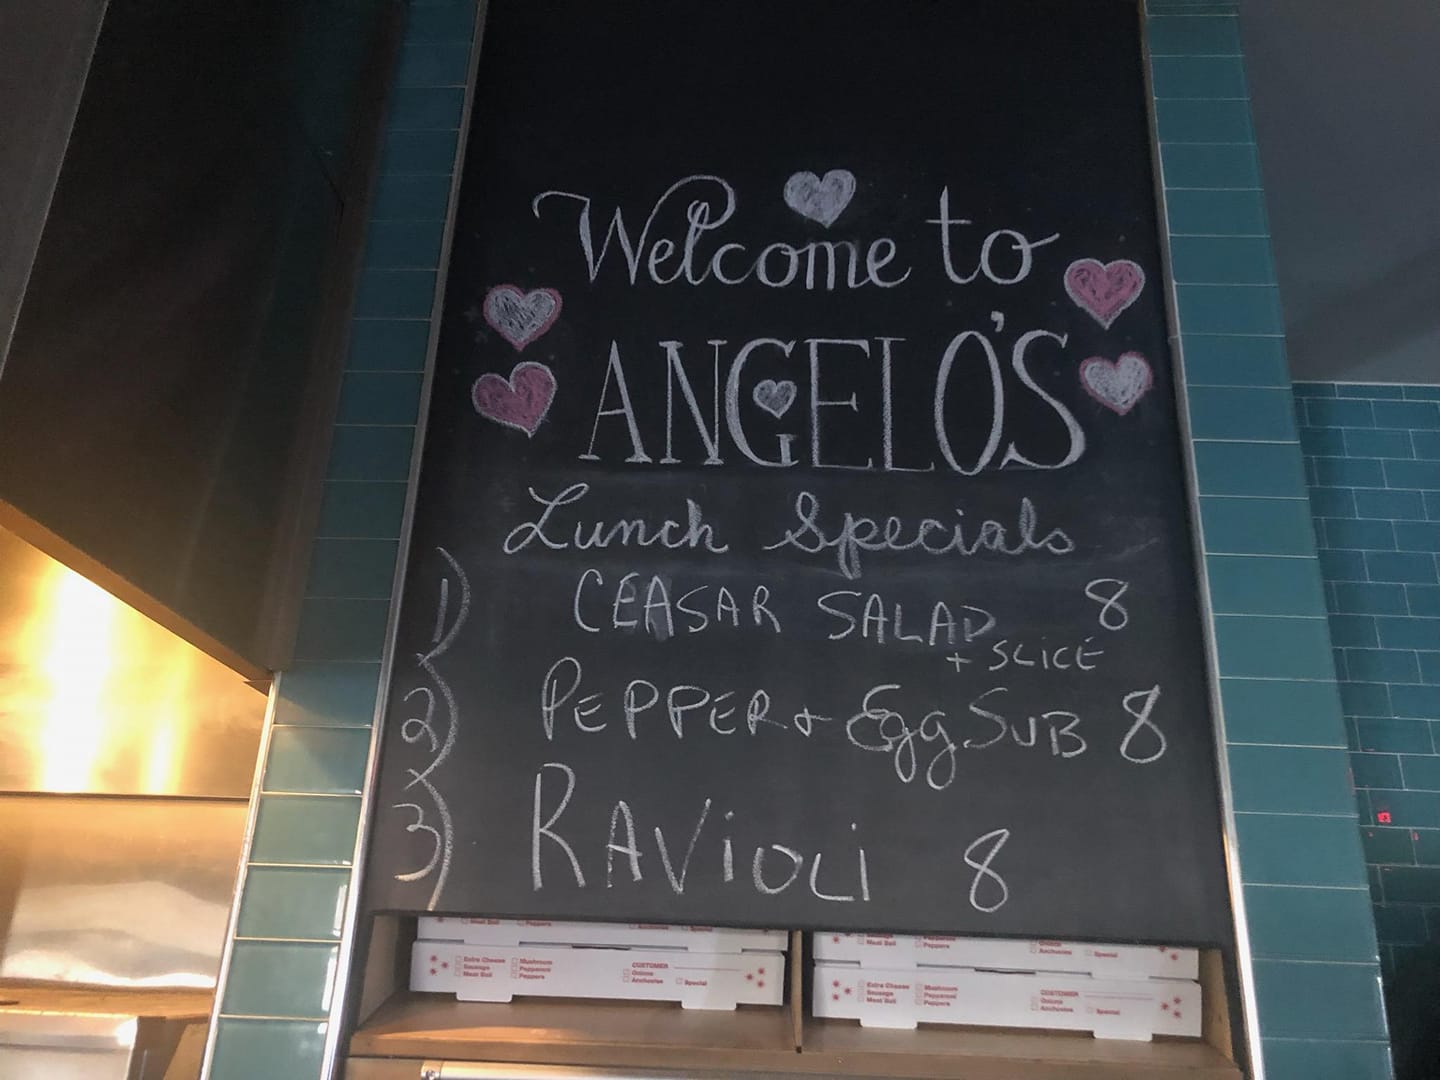 Welcome to
ANGELO'S
Lunch Specials
1) CEASAR SALAD 8
+ SLICE
2) PEPPER + Egg SUB 8
3) RAViOLi 8
Meat Ball Peppers Anchovies Special
Extra Cheese Mushroom CUSTOMER
Sausage Pepperoni Onions
Meat Ball Peppers Anchovies Special
Meat Ball Peppers Anchovies Special
Extra Cheese Mushroom CUSTOMER
Sausage Pepperoni Onions
Meat Ball Peppers Anchovies Special